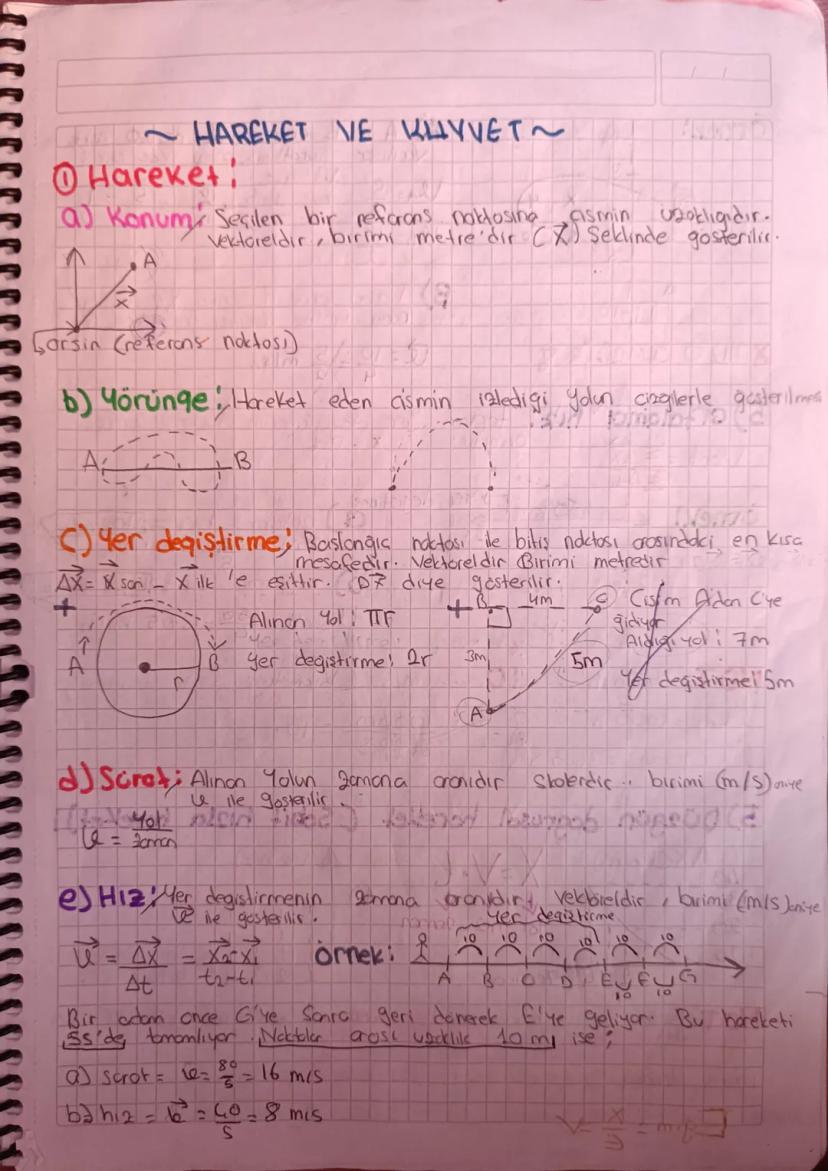 ~ HAREKET VE KUVVET ~
① Hareket:
a) Konum: Seçilen bir referans noktasına cismin uzaklığıdır.
Vektöreldir, birimi metre'dir (X⃗) Şeklinde gösterilir.
A
X⃗
orjin (referans noktası)
b) Yörünge: Hareket eden cismin izlediği yolun çizgilerle gösterilmesi
A B
c) Yer değiştirme: Başlangıç noktası ile bitiş noktası arasındaki en kısa
mesafedir. Vektöreldir Birimi metredir
ΔX⃗ = X⃗ son - X⃗ ilk 'e eşittir. diye gösterilir.
+ Alınan Yol: πr
A B r
Yer değiştirme: 2r
+ B 4m C Cisim A'dan C'ye
gidiyor
Aldığı yol: 7m
3m 5m
Yer değiştirme: 5m
A
d) Sürat: Alınan Yolun zamana oranıdır Skalerdir.. birimi (m/s)
ile gösterilir.
ϑ = Yol/zaman
e) Hız: Yer değiştirmenin zamana oranıdır, vektöreldir, birimi (m/s)
ϑ⃗ ile gösterilir.
Yer değiştirme
ϑ⃗ = ΔX⃗/Δt = X⃗2-X⃗1/t2-t1 Örnek: 10 10 10 10 10 10
A B C D E F G
10 10
Bir adam önce G'ye Sonra geri dönerek E'ye geliyor. Bu hareketi
5s'de tamamlıyor. Noktalar arası uzaklık 10 m ise;
a) sürat = ϑ = 80/5 = 16 m/s
b) hız = ϑ⃗ = 40/5 = 8 m/s